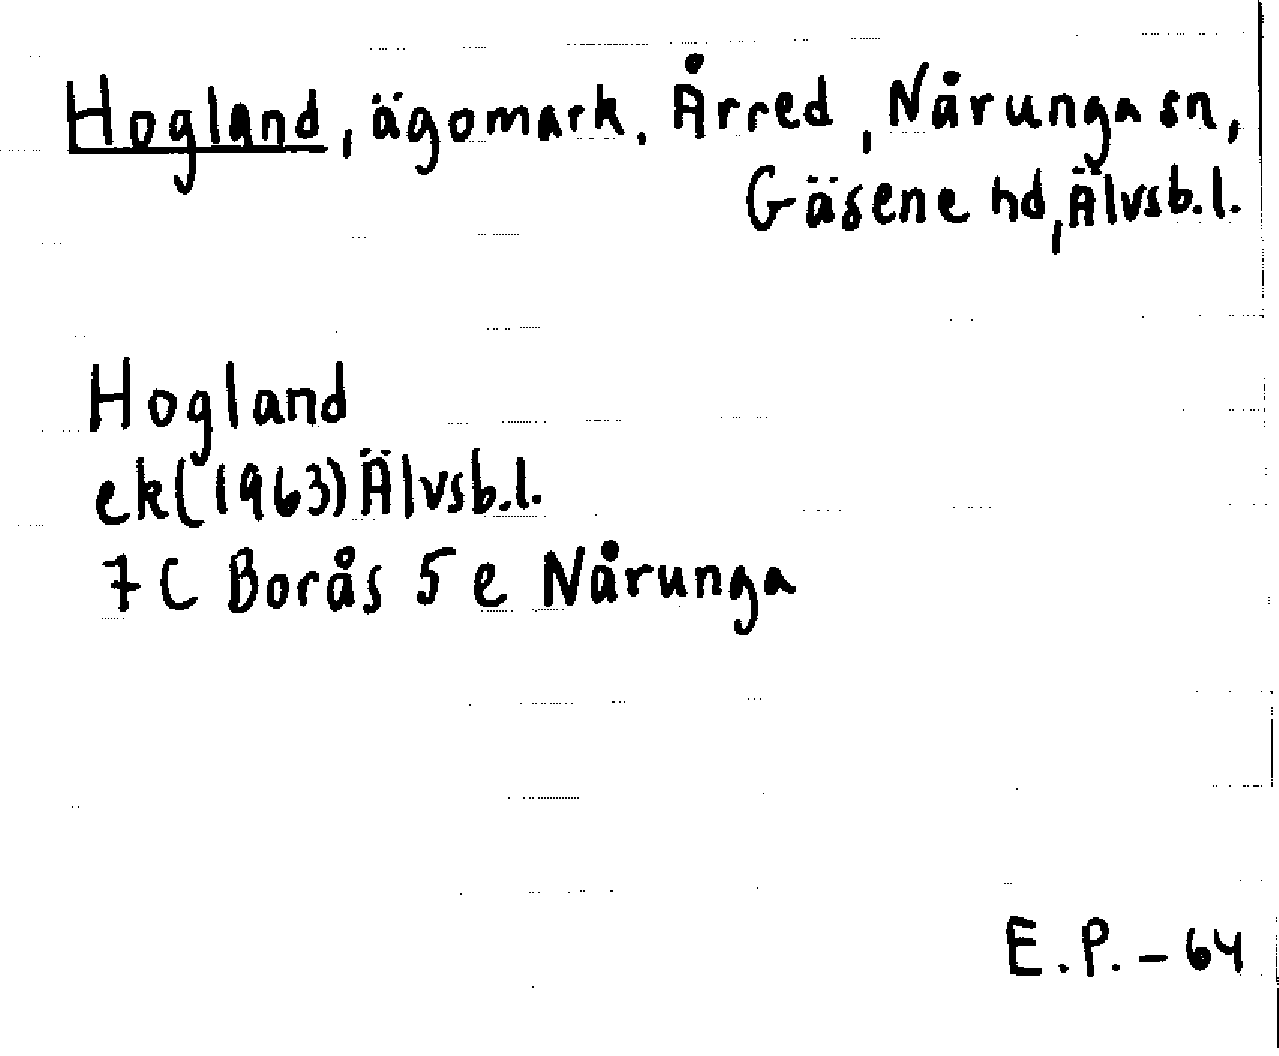 Hogland, ägomark, Årred, Nårunga sn,
Gäsene hd, Älvsb.l.
Hogland
ek(1963) Älvsb.l.
7C Borås 5 e Nårunga
E.P. - 64